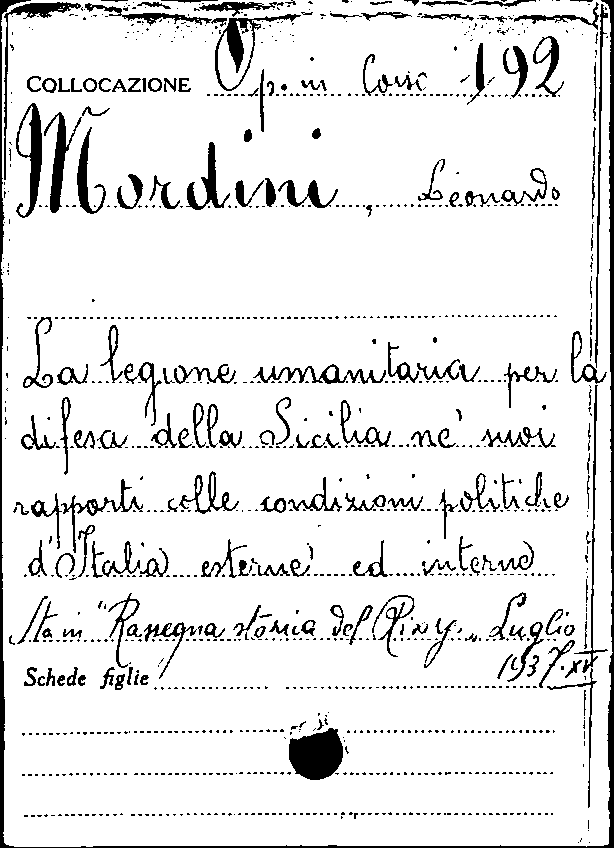 COLLOCAZIONE Op. in Corso 192
Mordini, Leonardo
La legione umanitaria per la
difesa della Sicilia ne' suoi
rapporti colle condizioni politiche
d'Italia esterne ed interne
Sta in "Rassegna storica del Risg.„ Luglio
1937.XV
Schede figlie